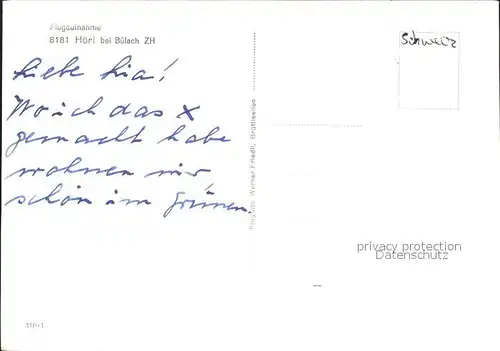 Flugaufnahme
8181 Höri bei Bülach ZH
Schweiz
Liebe Lia!
Wo ich das X
gemacht habe
wohnen wir
schön im Grünen.
Flugfoto Werner Friedli, Brüttisellen
privacy protection
Datenschutz